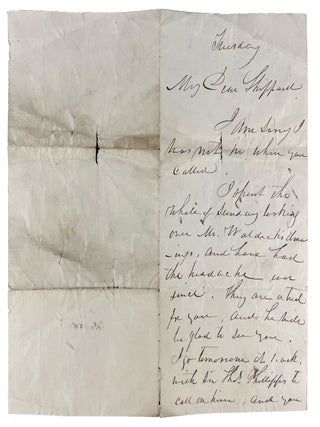 Tuesday
My Dear Sheppard.
I am sorry I
was not in when you
called.
I spent the
whole of Sunday looking
over Mr. Waldeck's draw
ings, and have had
the headache ever
since. They are a treat
for you, and he will
be glad to see you.
I go tomorrow at 1. o'ck.
with Sir Thos. Phillipps to
call on him, and you